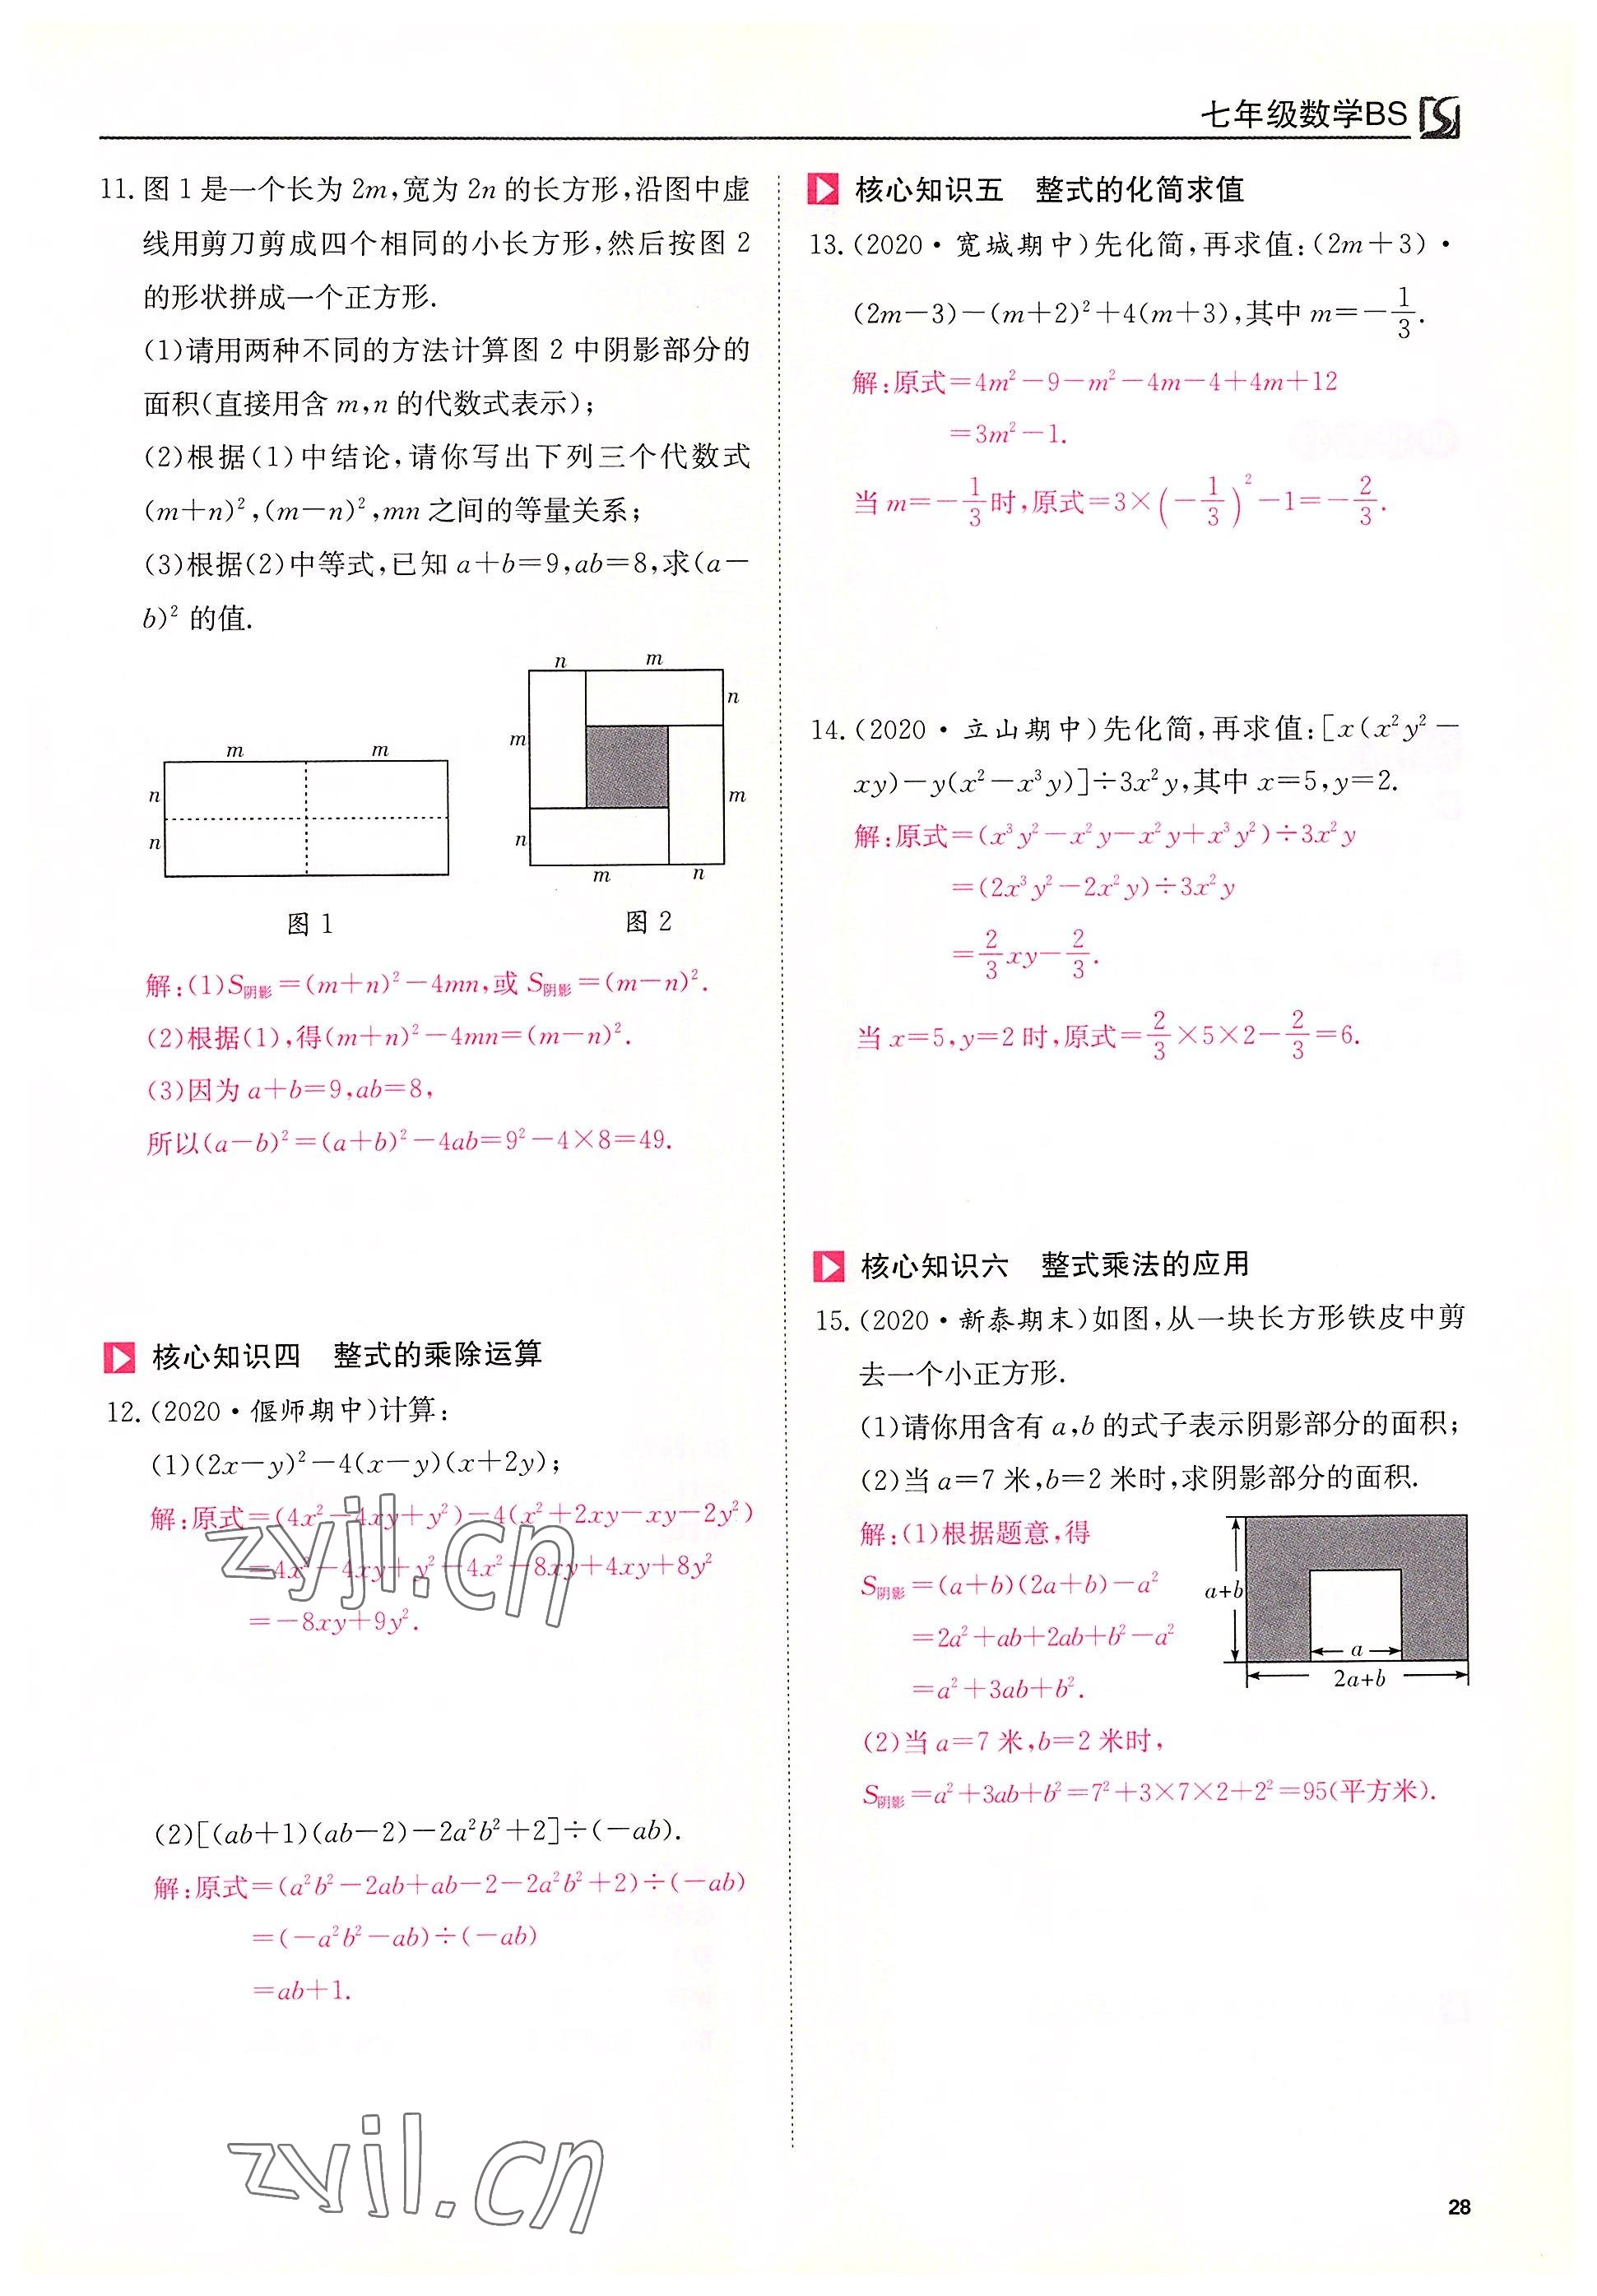 七年级数学BS
11. 图 1 是一个长为 2m,宽为 2n 的长方形,沿图中虚
线用剪刀剪成四个相同的小长方形,然后按图 2
的形状拼成一个正方形.
(1)请用两种不同的方法计算图 2 中阴影部分的
面积(直接用含 m,n 的代数式表示);
(2)根据(1)中结论,请你写出下列三个代数式
(m+n)²,(m−n)²,mn 之间的等量关系;
(3)根据(2)中等式,已知 a+b=9,ab=8,求(a−
b)² 的值.
m m
n
n
图 1
n m
n
m
m
n
m n
图 2
解:(1)S阴影=(m+n)²−4mn,或 S阴影=(m−n)².
(2)根据(1),得(m+n)²−4mn=(m−n)².
(3)因为 a+b=9,ab=8,
所以(a−b)²=(a+b)²−4ab=9²−4×8=49.
核心知识四 整式的乘除运算
12. (2020·偃师期中)计算:
(1)(2x−y)²−4(x−y)(x+2y);
解:原式=(4x²−4xy+y²)−4(x²+2xy−xy−2y²)
=4x²−4xy+y²−4x²−8xy+4xy+8y²
=−8xy+9y².
(2)[(ab+1)(ab−2)−2a²b²+2]÷(−ab).
解:原式=(a²b²−2ab+ab−2−2a²b²+2)÷(−ab)
=(−a²b²−ab)÷(−ab)
=ab+1.
核心知识五 整式的化简求值
13. (2020·宽城期中)先化简,再求值:(2m+3)·
(2m−3)−(m+2)²+4(m+3),其中 m=−1/3.
解:原式=4m²−9−m²−4m−4+4m+12
=3m²−1.
当 m=−1/3时,原式=3×(−1/3)²−1=−2/3.
14. (2020·立山期中)先化简,再求值:[x(x²y²−
xy)−y(x²−x³y)]÷3x²y,其中 x=5,y=2.
解:原式=(x³y²−x²y−x²y+x³y²)÷3x²y
=(2x³y²−2x²y)÷3x²y
=2/3xy−2/3.
当 x=5,y=2 时,原式=2/3×5×2−2/3=6.
核心知识六 整式乘法的应用
15. (2020·新泰期末)如图,从一块长方形铁皮中剪
去一个小正方形.
(1)请你用含有 a,b 的式子表示阴影部分的面积;
(2)当 a=7 米,b=2 米时,求阴影部分的面积.
解:(1)根据题意,得
S阴影=(a+b)(2a+b)−a²
=2a²+ab+2ab+b²−a²
=a²+3ab+b².
a+b
a
2a+b
(2)当 a=7 米,b=2 米时,
S阴影=a²+3ab+b²=7²+3×7×2+2²=95(平方米).
zyjl.cn
zyjl.cn
28